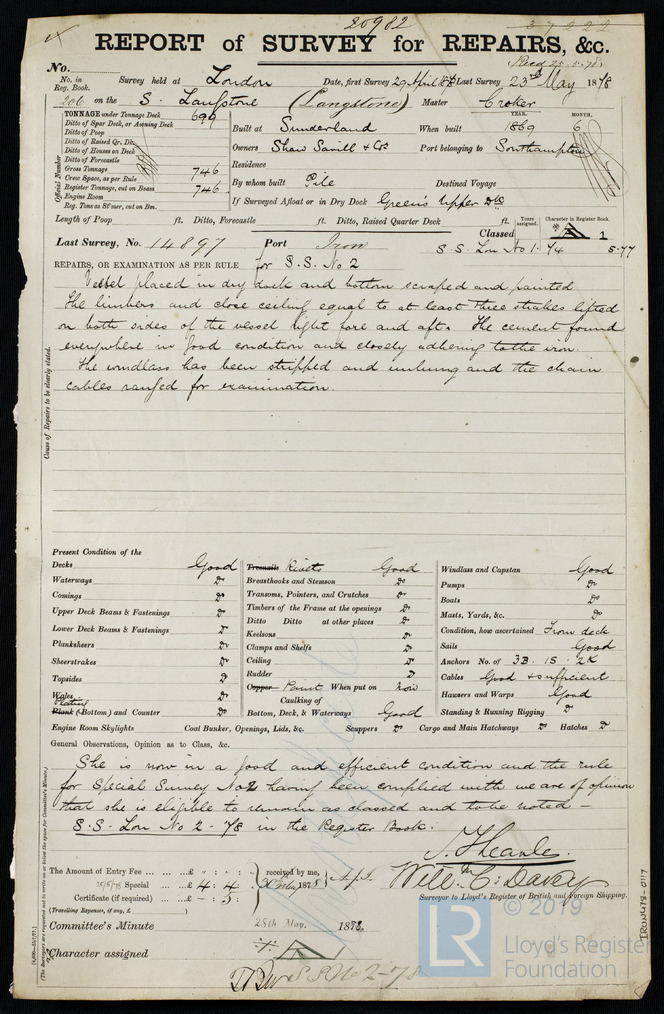 20982
37222
REPORT of SURVEY for REPAIRS, &c.
No.
Recd 25.5.78
No. in Reg. Book.
Survey held at London Date, first Survey 29 April 1878 Last Survey 23rd May 1878
206 on the S. Langstone (Langstone) Master Croker
TONNAGE under Tonnage Deck 699
Ditto of Spar Deck, or Awning Deck
Ditto of Poop
Ditto of Raised Qr. Dk.
Ditto of Houses on Deck
Ditto of Forecastle
Gross Tonnage 746
Crew Space, as per Rule
Register Tonnage, cut on Beam 746
Engine Room
Reg. Tons as St'mer, cut on Bm.
Official Number
Built at Sunderland When built 1869 6
YEAR. MONTH.
Owners Shaw Savill & Co. Port belonging to Southampton
Residence
By whom built Pile Destined Voyage
If Surveyed Afloat or in Dry Dock Green's Upper Dk
Length of Poop ft. Ditto, Forecastle ft. Ditto, Raised Quarter Deck ft.
Years assigned. Character in Register Book.
Classed A 1
Last Survey, No. 14897 Port Iron
S.S. Lon No 1. 74 5.77
REPAIRS, OR EXAMINATION AS PER RULE for S.S. No 2
Vessel placed in dry dock and bottom scraped and painted
The limbers and close ceiling equal to at least three strakes lifted
on both sides of the vessel right fore and aft. The cement found
everywhere in good condition and closely adhering to the iron.
The windlass has been stripped and unhung and the chain
cables ranged for examination.
Cause of Repairs to be clearly stated.
Present Condition of the
Decks Good
Waterways Do
Comings Do
Upper Deck Beams & Fastenings Do
Lower Deck Beams & Fastenings Do
Planksheers Do
Sheerstrakes Do
Topsides Do
Wales Do
Plating
Plank (Bottom) and Counter Do
Engine Room Skylights
Treenails Rivets Good
Breasthooks and Stemson Do
Transoms, Pointers, and Crutches Do
Timbers of the Frame at the openings Do
Ditto Ditto at other places Do
Keelsons Do
Clamps and Shelfs Do
Ceiling Do
Rudder Do
Copper Paint When put on now
Caulking of
Bottom, Deck, & Waterways Good
Coal Bunker, Openings, Lids, &c. Scuppers Do Cargo and Main Hatchways Do Hatches Do
Windlass and Capstan Good
Pumps Do
Boats Do
Masts, Yards, &c. Do
Condition, how ascertained From deck
Sails Good
Anchors No. of 3B. 1S. 2K
Cables Good & sufficient
Hawsers and Warps Good
Standing & Running Rigging Do
General Observations, Opinion as to Class, &c.
She is now in a good and efficient condition and the rule
for Special Survey No 2 having been complied with we are of opinion
that she is eligible to remain as classed and to be noted -
S.S. Lon No 2 - 78 in the Register Book.
The Amount of Entry Fee ... £ : : received by me,
25/5/78 Special ... £ 4 : 4 :
Certificate (if required) ... £ - : 5 :
(Travelling Expenses, if any, £ )
Will. C. Davey
Surveyor to Lloyd's Register of British and Foreign Shipping.
Committee's Minute 28th May. 1878.
Character assigned A
S S No 2 - 78
IRON478-0117
© 2019
LR
Lloyd's Register
Foundation